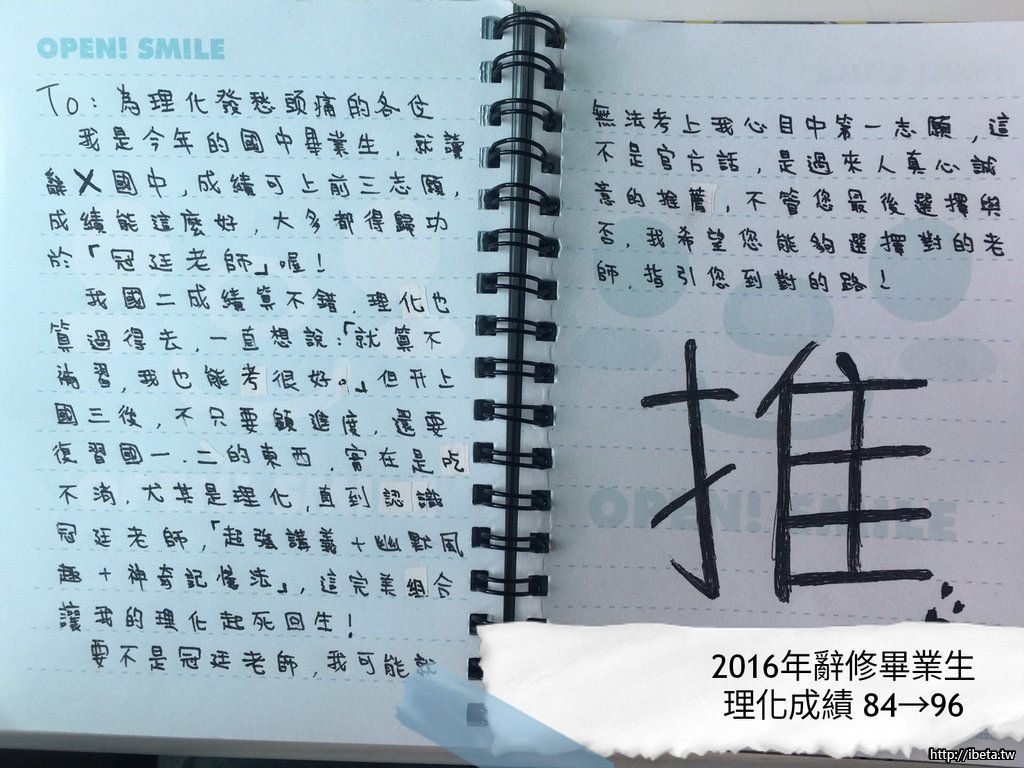 OPEN! SMILE
To：為理化發愁頭痛的各位
我是今年的國中畢業生，就讀
辭X國中，成績可上前三志願，
成績能這麼好，大多都得歸功
於「冠廷老師」喔！
我國二成績算不錯，理化也
算過得去，一直想說：「就算不
補習，我也能考很好。」但升上
國三後，不只要顧進度，還要
復習國一、二的東西，實在是吃
不消，尤其是理化，直到認識
冠廷老師，「超強講義＋幽默風
趣＋神奇記憶法」，這完美組合
讓我的理化起死回生！
要不是冠廷老師，我可能就
無法考上我心目中第一志願，這
不是官方話，是過來人真心誠
意的推薦，不管您最後選擇與
否，我希望您能夠選擇對的老
師，指引您到對的路！
推
OPEN! SMILE
2016年辭修畢業生
理化成績 84→96
http://ibeta.tw